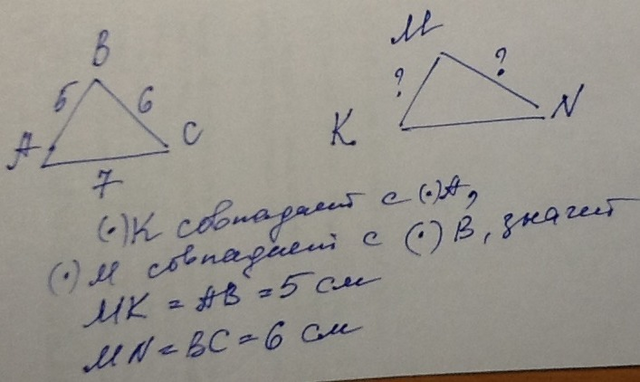 B
5
6
A
C
7
M
?
?
K
N
(·)K совпадает с (·)A,
(·)M совпадает с (·)B, значит
MK = AB = 5 см
MN = BC = 6 см